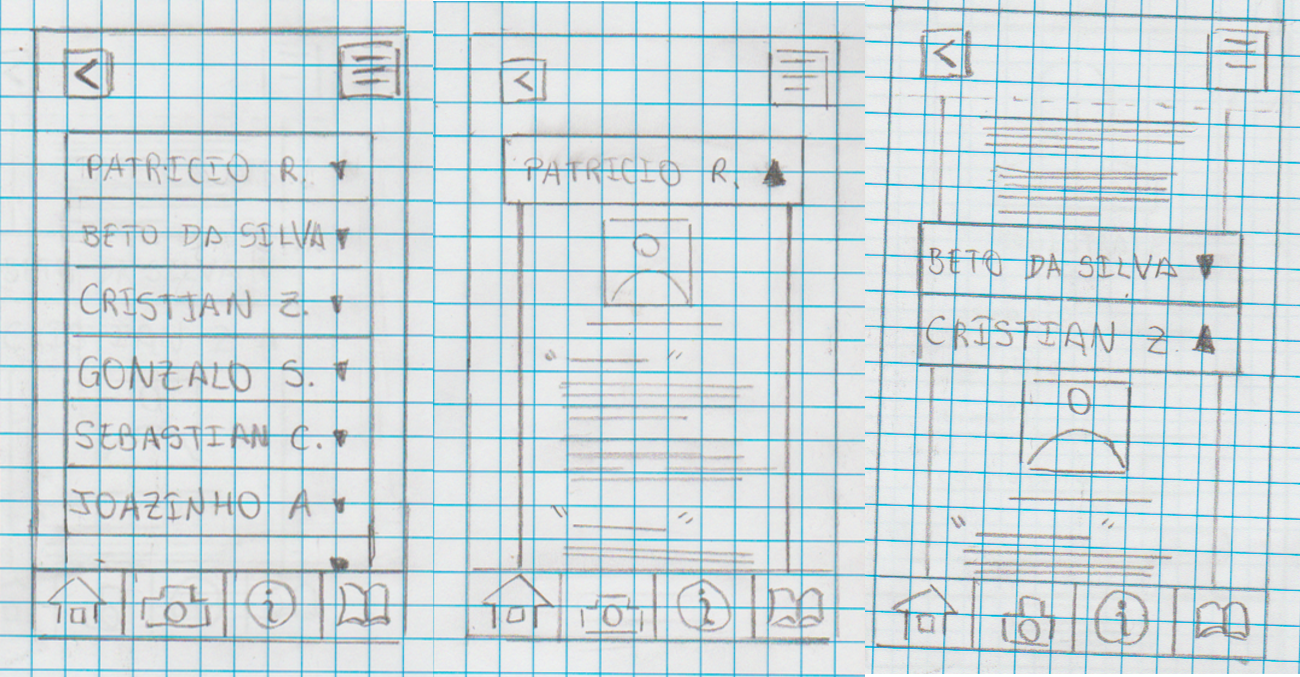 <
PATRICIO R. ▼
BETO DA SILVA ▼
CRISTIAN Z. ▼
GONZALO S. ▼
SEBASTIAN C. ▼
JOAZINHO A ▼
i
<
PATRICIO R. ▲
“ ”
“ ”
i
<
BETO DA SILVA ▼
CRISTIAN Z. ▲
“ ”
i